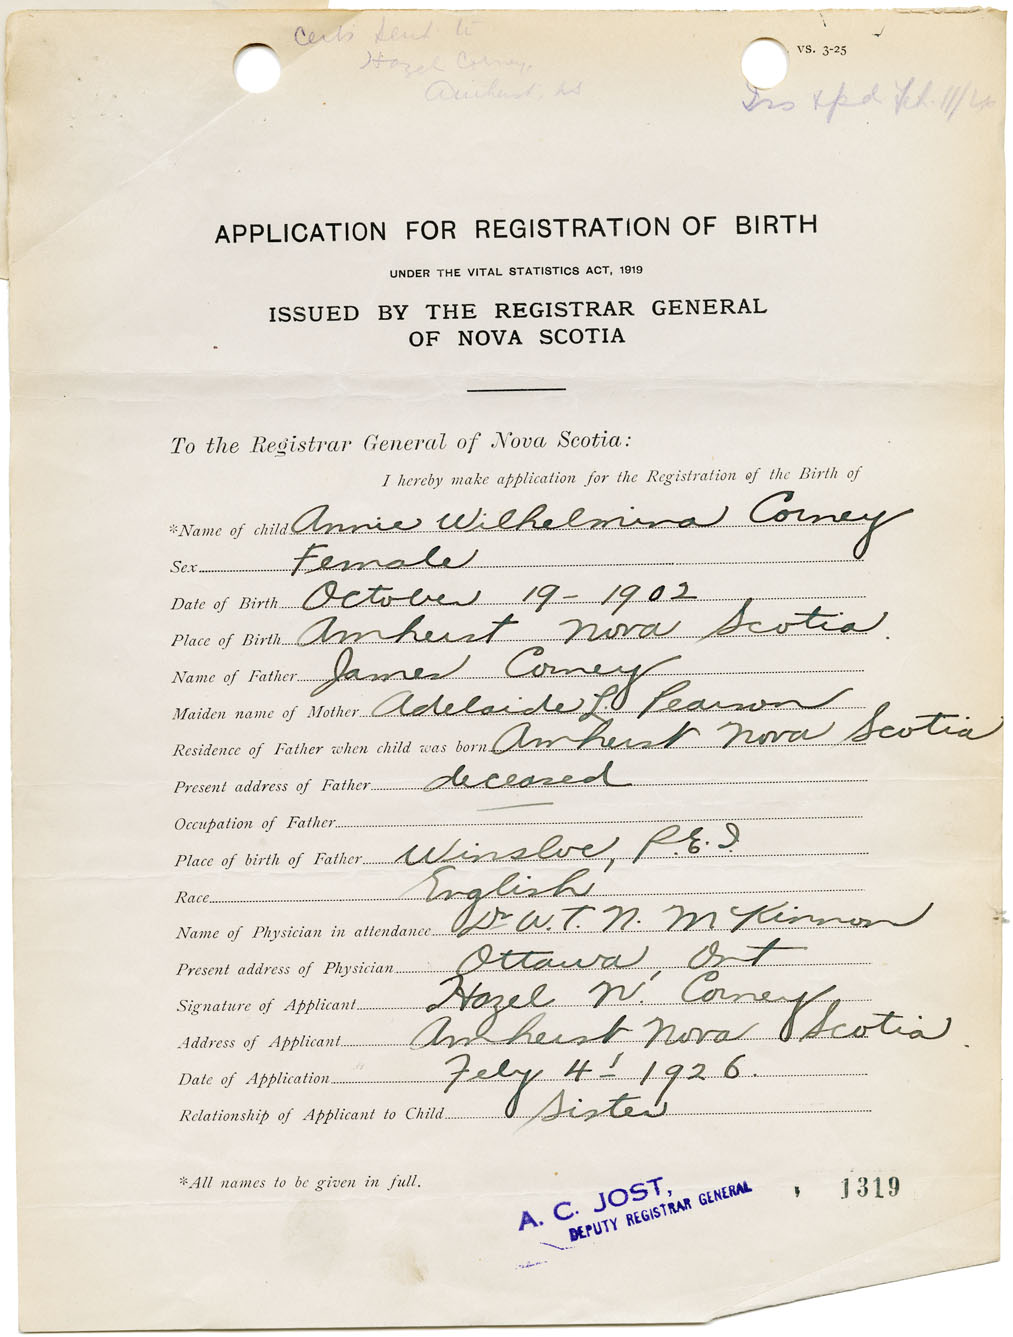 Certs sent to
Hazel Corney,
Amherst, NS
VS. 3-25
Feb. 11/26
APPLICATION FOR REGISTRATION OF BIRTH
UNDER THE VITAL STATISTICS ACT, 1919
ISSUED BY THE REGISTRAR GENERAL
OF NOVA SCOTIA
To the Registrar General of Nova Scotia:
I hereby make application for the Registration of the Birth of
*Name of child Annie Wilhelmina Corney
Sex Female
Date of Birth October 19 - 1902
Place of Birth Amherst Nova Scotia.
Name of Father James Corney
Maiden name of Mother Adelaide L. Pearson
Residence of Father when child was born Amherst Nova Scotia
Present address of Father deceased
Occupation of Father
Place of birth of Father Winsloe, P.E.I
Race English
Name of Physician in attendance Dr W. T. N. McKinnon
Present address of Physician Ottawa, Ont
Signature of Applicant Hazel N. Corney
Address of Applicant Amherst Nova Scotia.
Date of Application Feby 4' 1926.
Relationship of Applicant to Child Sister
*All names to be given in full.
A. C. JOST,
DEPUTY REGISTRAR GENERAL
1319